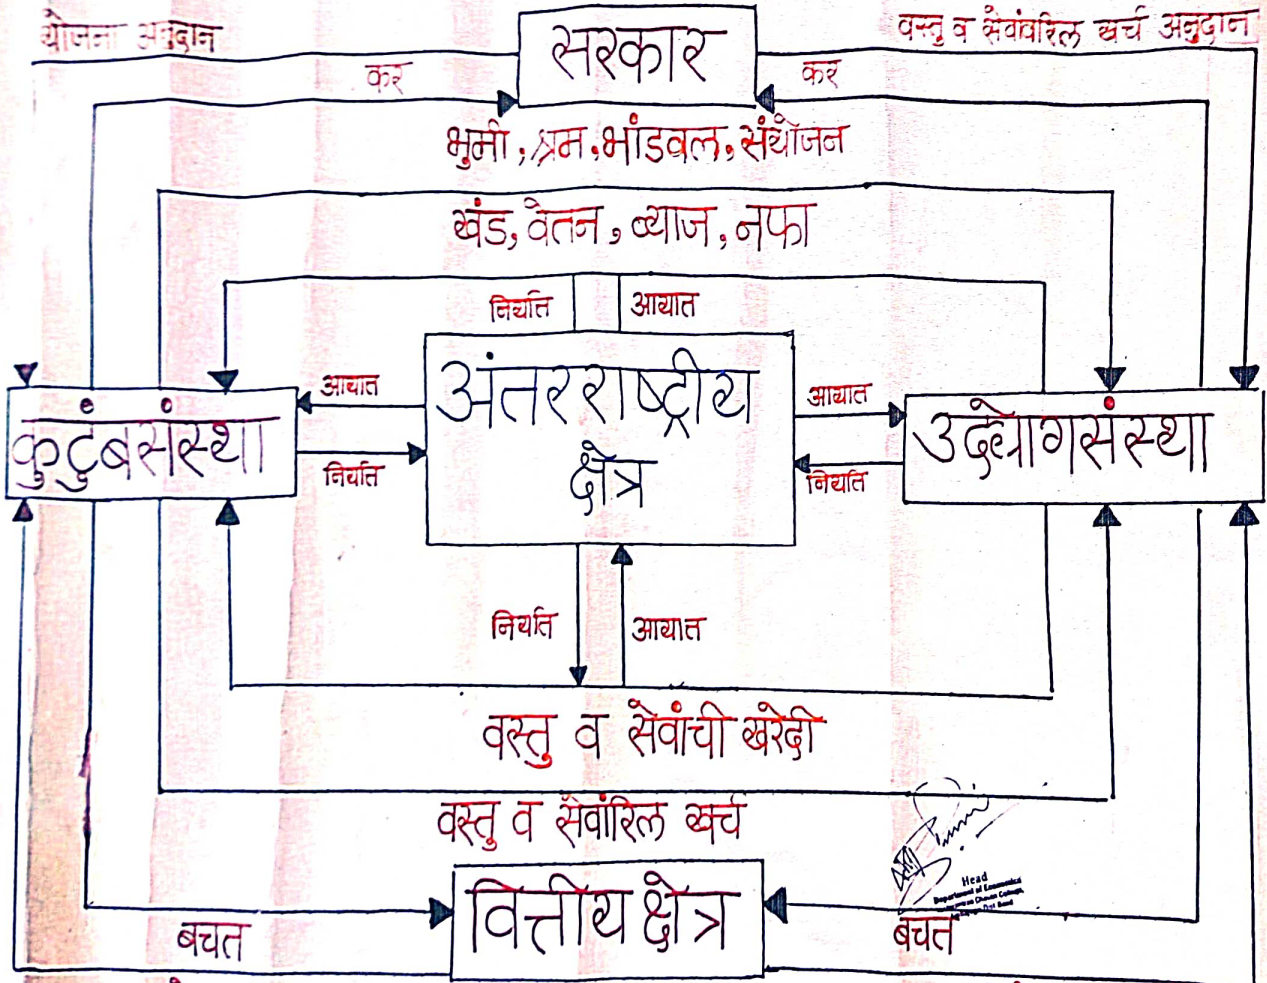 योजना अनुदान
सरकार
वस्तु व सेवांवरिल खर्च अनुदान
कर
कर
भुमी, श्रम, भांडवल, संयोजन
खंड, वेतन, व्याज, नफा
निर्यात
आयात
अंतरराष्ट्रीय
क्षेत्र
आयात
निर्यात
आयात
निर्यात
कुटुंबसंस्था
उद्योगसंस्था
निर्यात
आयात
वस्तु व सेवांची खरेदी
वस्तु व सेवांरिल खर्च
Head
Department of Economics
वित्तीय क्षेत्र
बचत
बचत